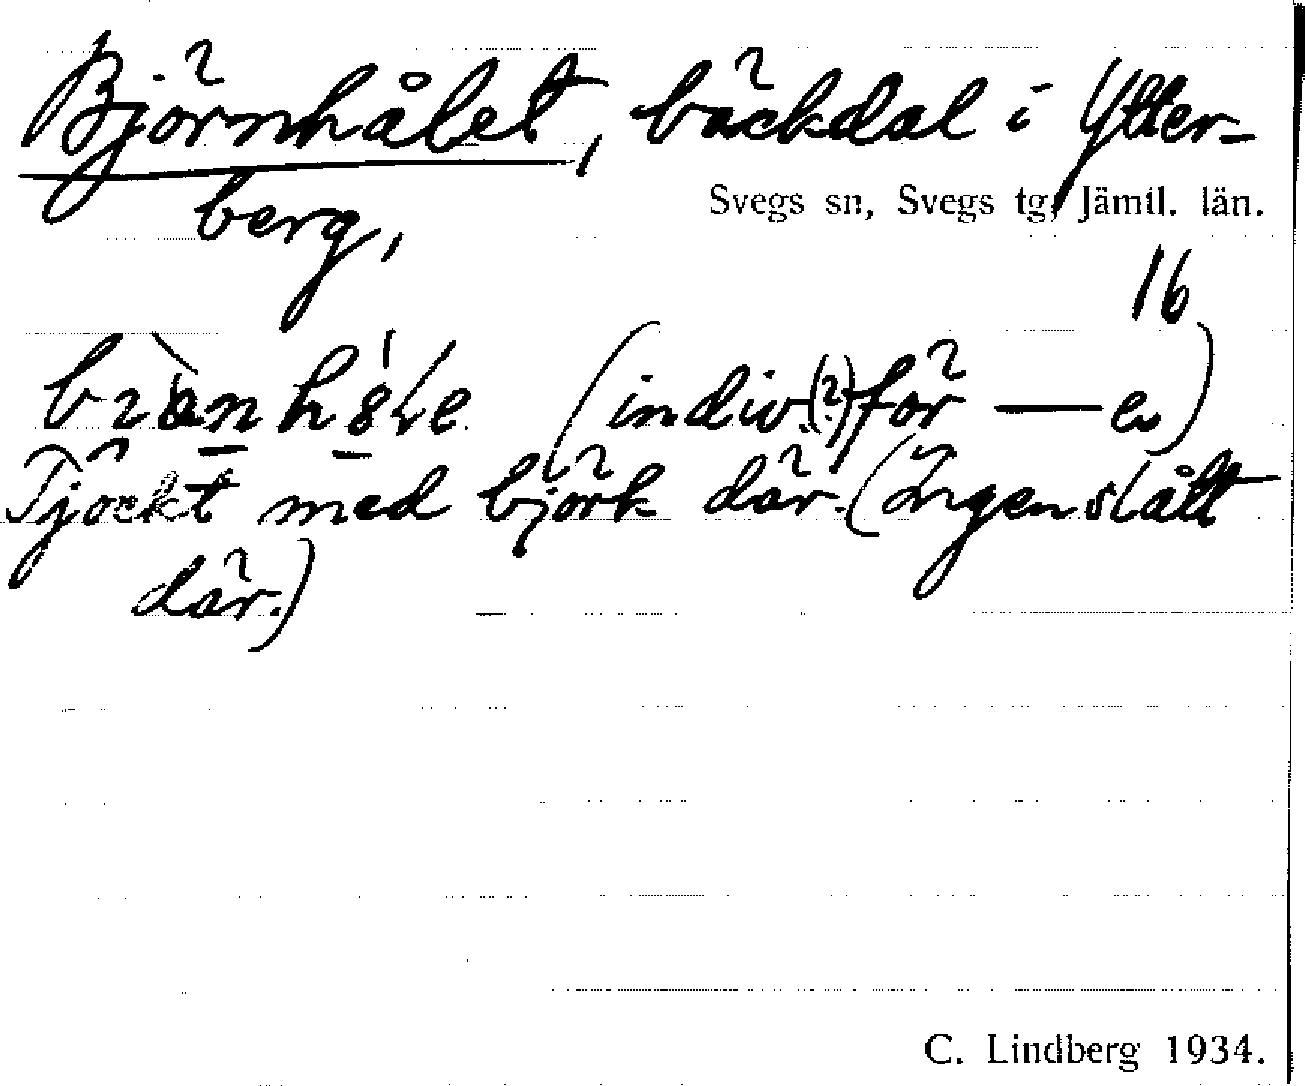 Björnhålet, bäckdal i Ytter-
berg,
Svegs sn, Svegs tg, Jämtl. län.
16
(indiv.(?) för — e)
Tjockt med björk där. (Ingen slått
där.)
C. Lindberg 1934.